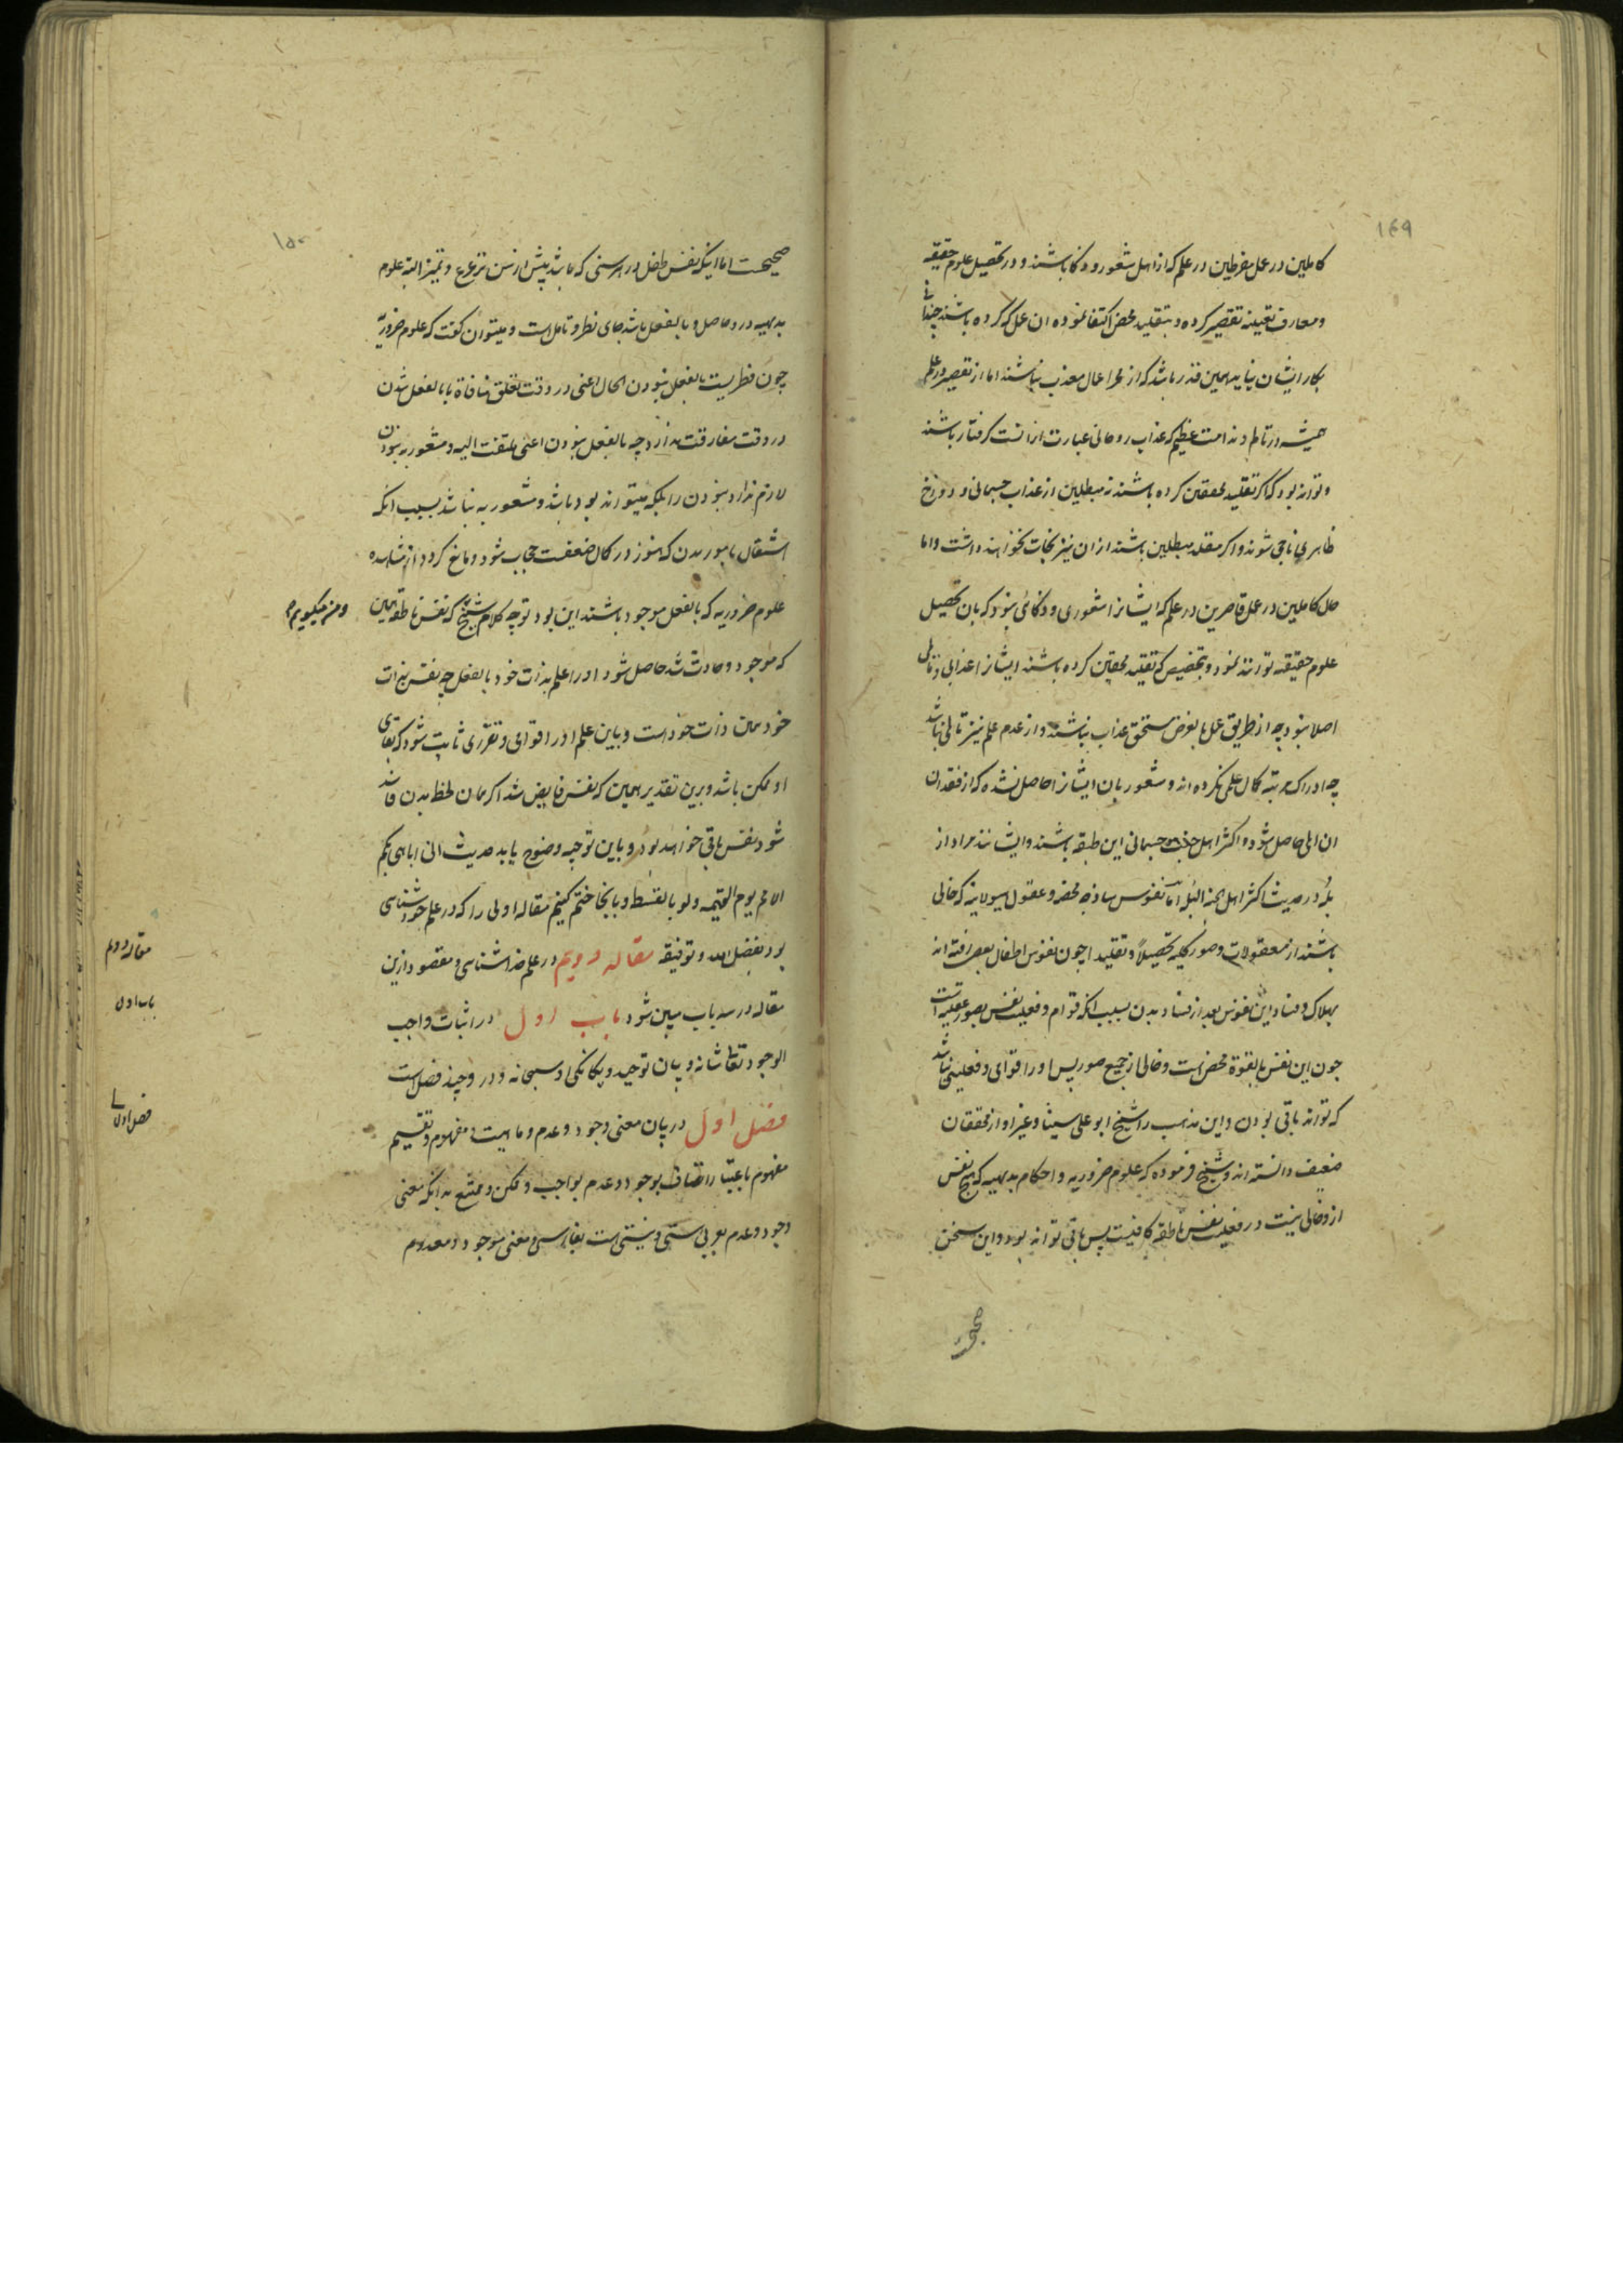 ۱۴۹
کاملین در عمل مفرطین در علم که از اهل شعور و ذکا باشند و در تحصیل علوم حقیقه
و معارف یقینیه تقصیر کرده و بتقلید محض اکتفا نموده ان عمل که کرده باشند چندانی
بکار ایشان نیاید همین قدر باشد که از ممر اعمال معذب نباشند اما از تقصیر در علم
همیشه در تالم و ندامت عظیم که عذاب روحانی عبارت از انست گرفتار باشند
و تواند بود که اگر تقلید محققین کرده باشند نه مبطلین از عذاب جسمانی و دوزخ
ظاهری ناجی شوند و اگر مقلد مبطلین باشند ازان نیز نجات نخواهند داشت و اما
حال کاملین در عمل قاصرین در علم که ایشانرا شعوری و ذکائی نبود که بان تحصیل
علوم حقیقه توانند نمود و بتخصیص که تقلید محققین کرده باشند ایشانرا عذابی و تالمی
اصلا نبود چه از طریق عمل بالفرض مستحق عذاب نباشند و از عدم علم نیز تالمی نباشد
چه ادراک مرتبه کمال علمی نکرده اند و شعور بان ایشانرا حاصل نشده که از فقدان
ان المی حاصل شود و اکثر اهل جنت جسمانی این طبقه باشند و ایشانند مراد از
بُله در حدیث اکثر اهل الجنة البُله اما نفوس ساذجه محضه و عقول هیولانیه که خالی
باشند از معقولات و صور کلیه تحصیلاً و تقلیدا چون نفوس اطفال بعضی رفته اند
بهلاک و فساد این نفوس بعد از فساد بدن بسبب انکه قوام و فعلیت نفس بصور عقلیه است
چون این نفس بالقوة محض است و خالی از جمیع صور پس او را قوامی و فعلیتی نباشد
که تواند باقی بودن و این مذهب را شیخ ابو علی سینا و غیر او از محققان
ضعیف دانسته اند و شیخ فرموده که علوم ضروریه و احکام بدیهیه که هیچ نفس
از و خالی نیست در فعلیت نفس ناطقه کافیست پس باقی تواند بود و این سخن
صحیح
۱۵۰
صحیحست اما اینکه نفس طفل در هر سنی که باشد پیش از سن ترعرع و تمیز البته علوم
بدیهیه درو حاصل و بالفعل باشد جای نظر و تامل است و میتوان گفت که علوم ضروریّه
چون فطریست بالفعل نبودن الحال اعنی در وقت تعلق منافاة با بالفعل شدن
در وقت مفارقت ندارد چه بالفعل نبودن اعنی ملتفت الیه و مشعور به نبودن
لازم ندارد نبودن را بلکه میتواند بود باشد و مشعور به نباشد بسبب انکه
اشتغال بامور بدن که هنوز در کمال ضعفست حجاب شود و مانع گردد از مشاهده
علوم ضروریه که بالفعل موجود باشند این بود توجیه کلام شیخ که نفس ناطقه همین
و من میگویم
که موجود و حادث شد حاصل شود او را علم بذات خود بالفعل چه نفس بذات
خود همان ذات خود است و باین علم او را قوامی و تقرّری ثابت شود که بقای
او ممکن باشد و برین تقدیر همین که نفس فایض شد اگر همان لحظه بدن فاسد
شود نفس باقی خواهد بود و باین توجیه وضوح یابد حدیث انی اباهی بکم
الامم یوم القیمه و لو بالسقط و باینجا ختم کنیم مقاله اولی را که در علم خودشناسی
بود بفضل الله و توفیقه مقاله دویم در علم خداشناسی و مقصود ازین
مقاله در سه باب مبین شود باب اول در اثبات واجب
الوجود تعالی شانه و بیان توحید و یکانکی او سبحانه و درو چند فصل است
فصل اول در بیان معنی وجود و عدم و ماهیت و مفهوم و تقسیم
مفهوم باعتبار اتصاف بوجود و عدم بواجب و ممکن و ممتنع بدانکه معنی
وجود و عدم بعربی هستی و نیستی است بفارسی و معنی موجود و معدوم
مقاله دوم
باب اول
فصل اول